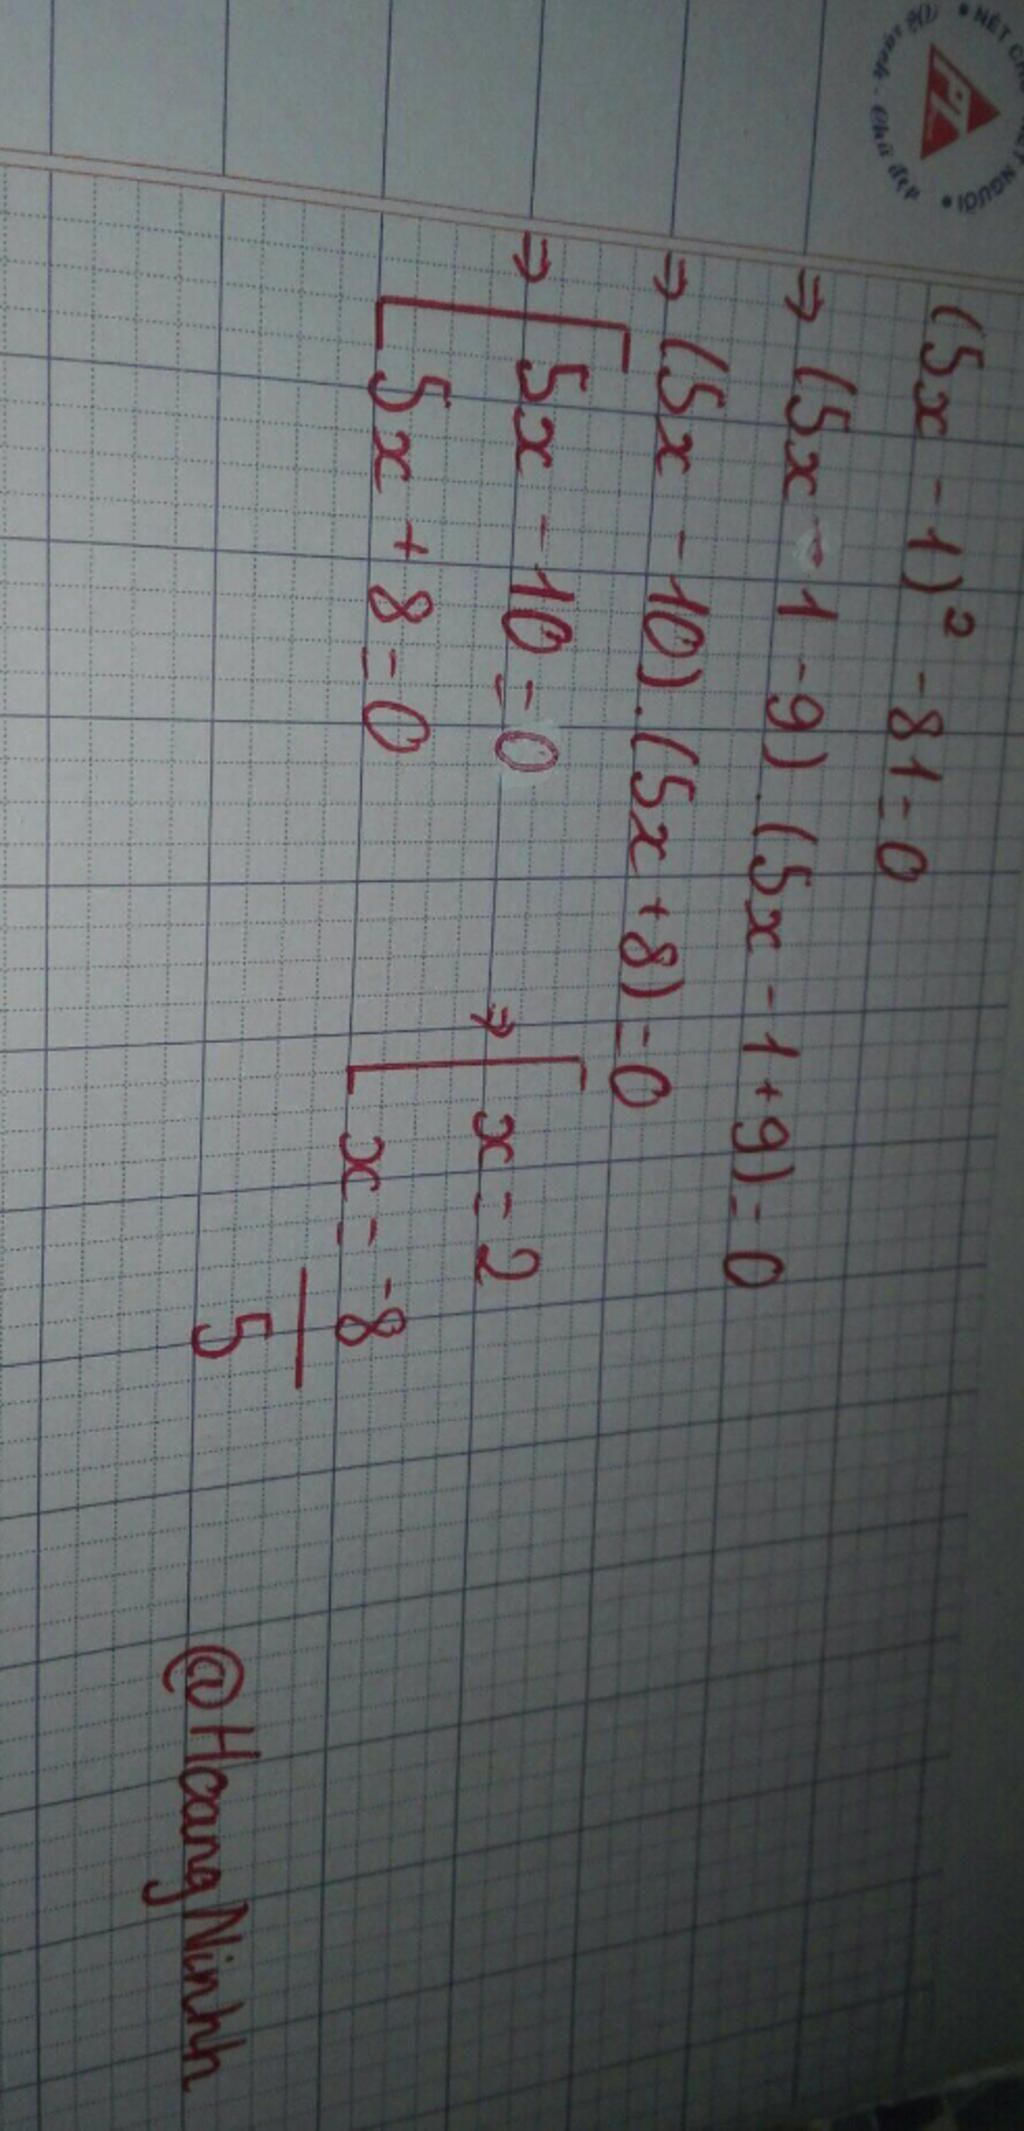 NÉT CH
NGƯỜI
chữ đẹp
(5x - 1)² - 81 = 0
⇒ (5x - 1 - 9) . (5x - 1 + 9) = 0
⇒ (5x - 10) . (5x + 8) = 0
⇒ [ 5x - 10 = 0 ⇒ [ x = 2
5x + 8 = 0 x = -8/5
@HoangNinhh